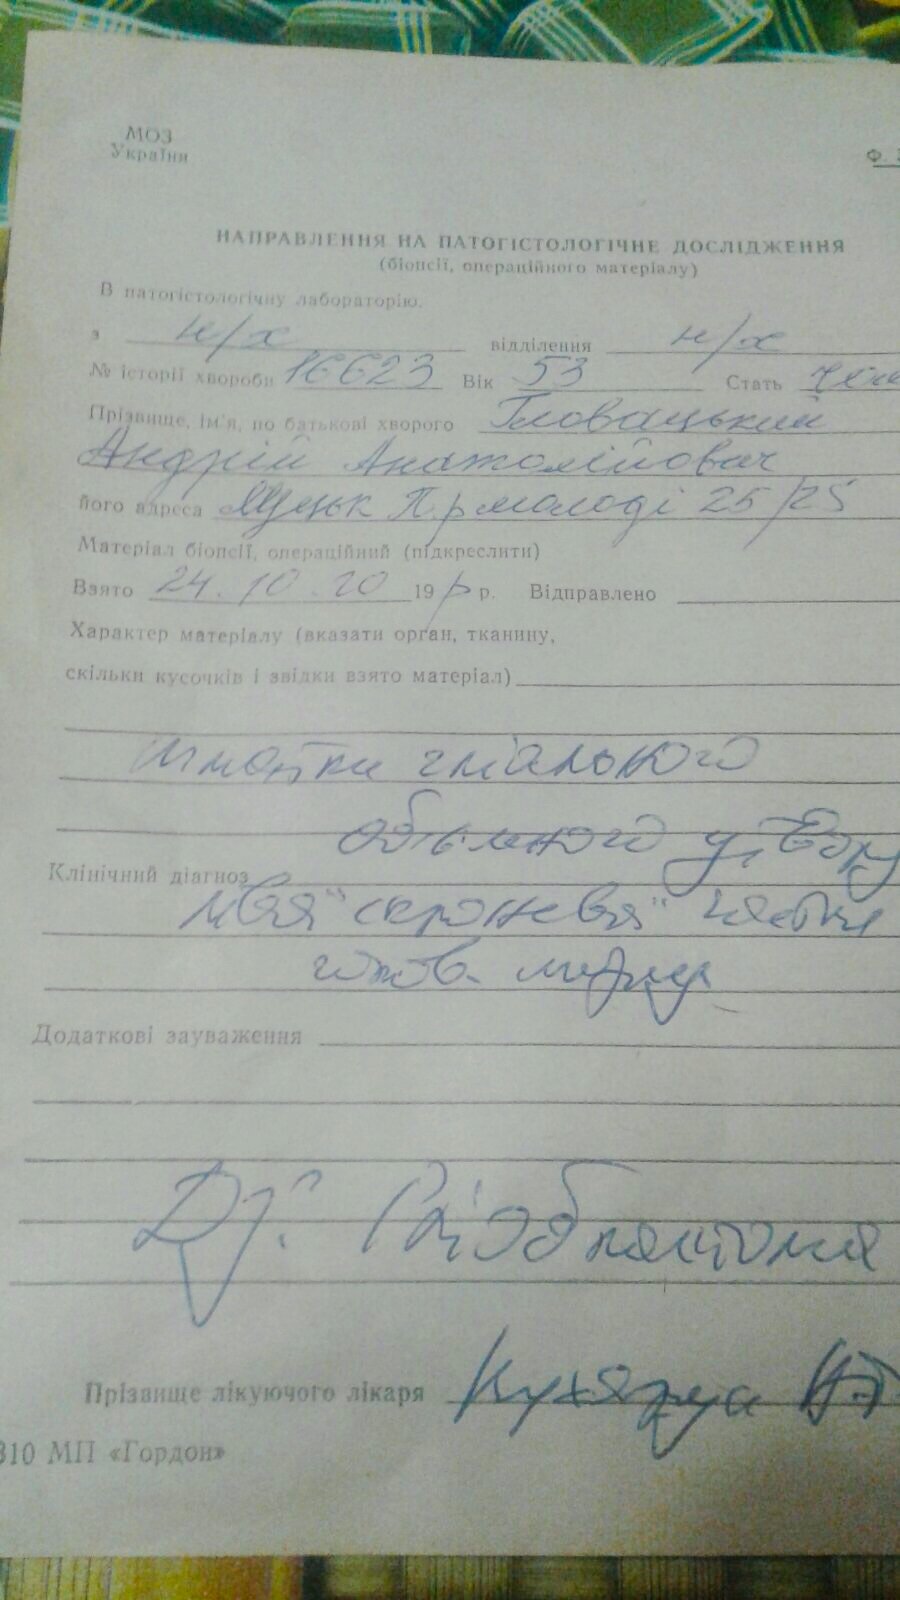 МОЗ
України
Ф.
НАПРАВЛЕННЯ НА ПАТОГІСТОЛОГІЧНЕ ДОСЛІДЖЕННЯ
(біопсії, операційного матеріалу)
В патогістологічну лабораторію.
з н/х відділення н/х
№ історії хвороби 16623 Вік 53 Стать
Прізвище, ім'я, по батькові хворого Гловацький
Андрій Анатолійович
його адреса Луцьк Пр молоді 25/25
Матеріал біопсії, операційний (підкреслити)
Взято 24.10.20 19 р. Відправлено
Характер матеріалу (вказати орган, тканину,
скільки кусочків і звідки взято матеріал)
шматки гліального
об'ємного утвору
Клінічний діагноз
ліва скронева частка
голов. мозку
Додаткові зауваження
Ds: Гліобластома
Прізвище лікуючого лікаря
310 МП «Гордон»